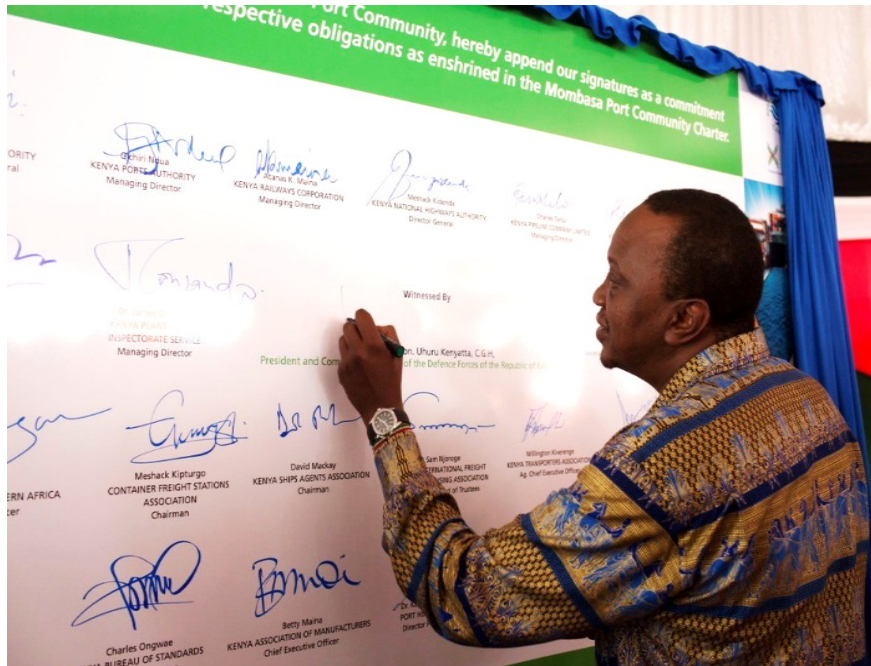 Port Community, hereby append our signatures as a commitment
respective obligations as enshrined in the Mombasa Port Community Charter.
ORITY
Gichiri Ndua
KENYA PORTS AUTHORITY
Managing Director
Atanas K. Maina
KENYA RAILWAYS CORPORATION
Managing Director
Meshack Kidenda
KENYA NATIONAL HIGHWAYS AUTHORITY
Director General
Charles Tanui
KENYA PIPELINE COMPANY LIMITED
Managing Director
KENYA PLANT
INSPECTORATE SERVICE
Managing Director
Witnessed By
on. Uhuru Kenyatta, C.G.H,
President and Com
of the Defence Forces of the Republic of
ERN AFRICA
cer
Meshack Kipturgo
CONTAINER FREIGHT STATIONS
ASSOCIATION
Chairman
David Mackay
KENYA SHIPS AGENTS ASSOCIATION
Chairman
Sam Njoroge
TERNATIONAL FREIGHT
SING ASSOCIATION
of Trustees
Willington Kiverenge
KENYA TRANSPORTERS ASSOCIATION
Ag. Chief Executive Officer
Charles Ongwae
YA BUREAU OF STANDARDS
Betty Maina
KENYA ASSOCIATION OF MANUFACTURERS
Chief Executive Officer
PORT
Director